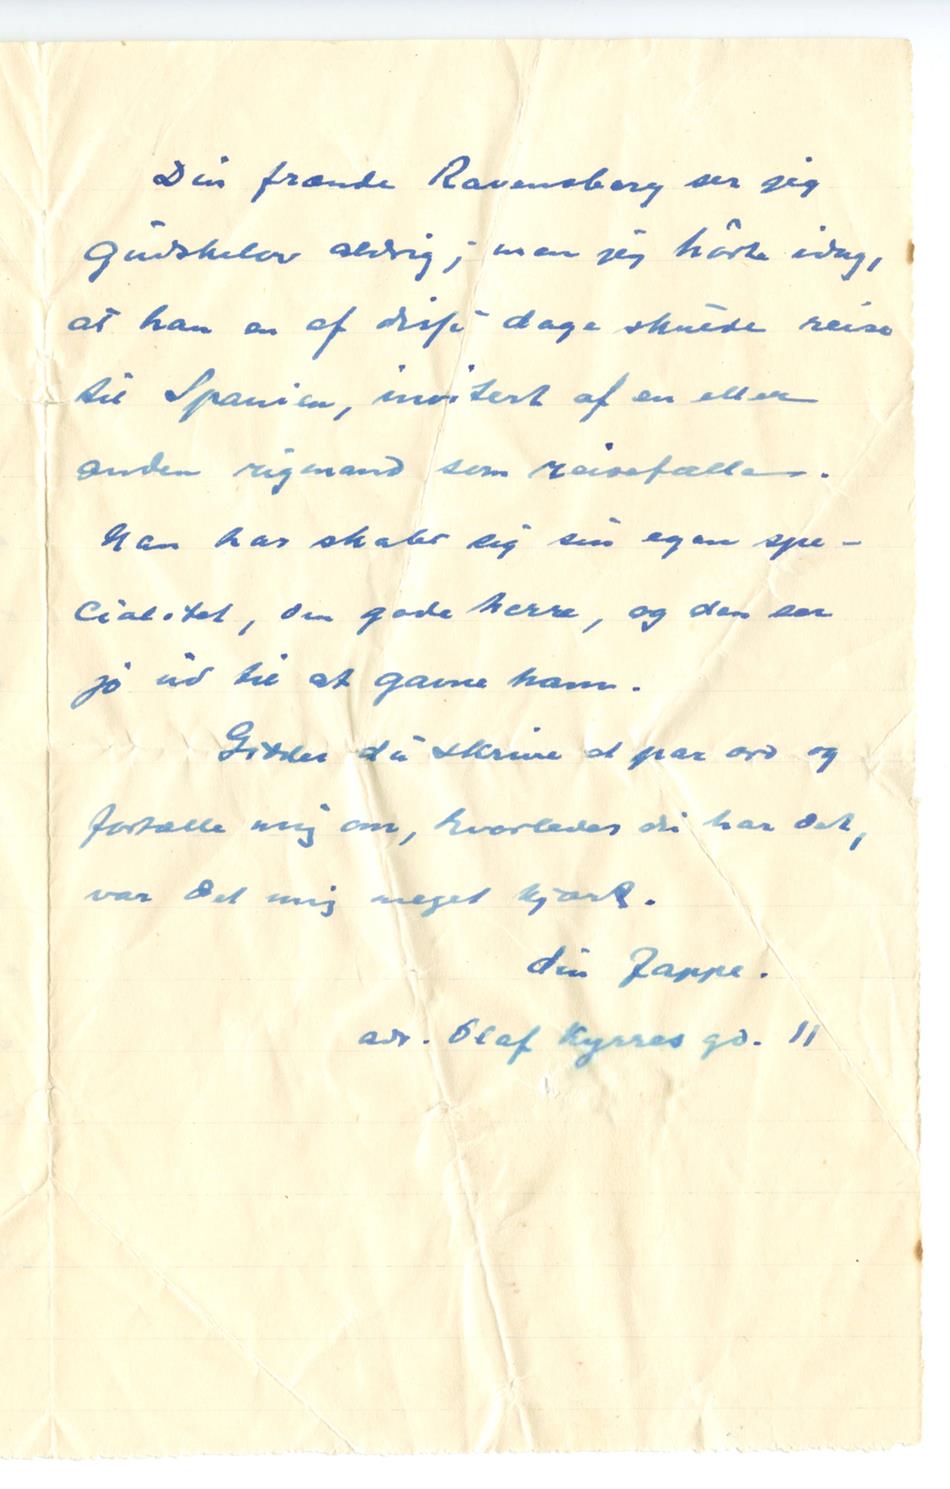 Din frænde Ravensberg ser jeg
Gudskelov aldrig; men jeg hörte idag,
at han en af disse dage skulde reise
til Spanien, invitert af en eller
anden rigmand som reisefælle.
Han har skabt sig sin egen spe-
cialitet, den gode herre, og den ser
jo ud til at gavne ham.
Gidder du skrive et par ord og
fortælle mig om, hvorledes du har det,
var det mig meget kjært.
din Jappe.
adr. Olaf Kyrres gd. 11